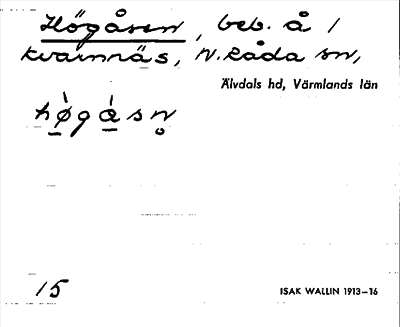 Högåsen, beb. å /
Kvarnnäs, N. Råda sn,
Älvdals hd, Värmlands län
hø̀gàsn̥
15
ISAK WALLIN 1913–16